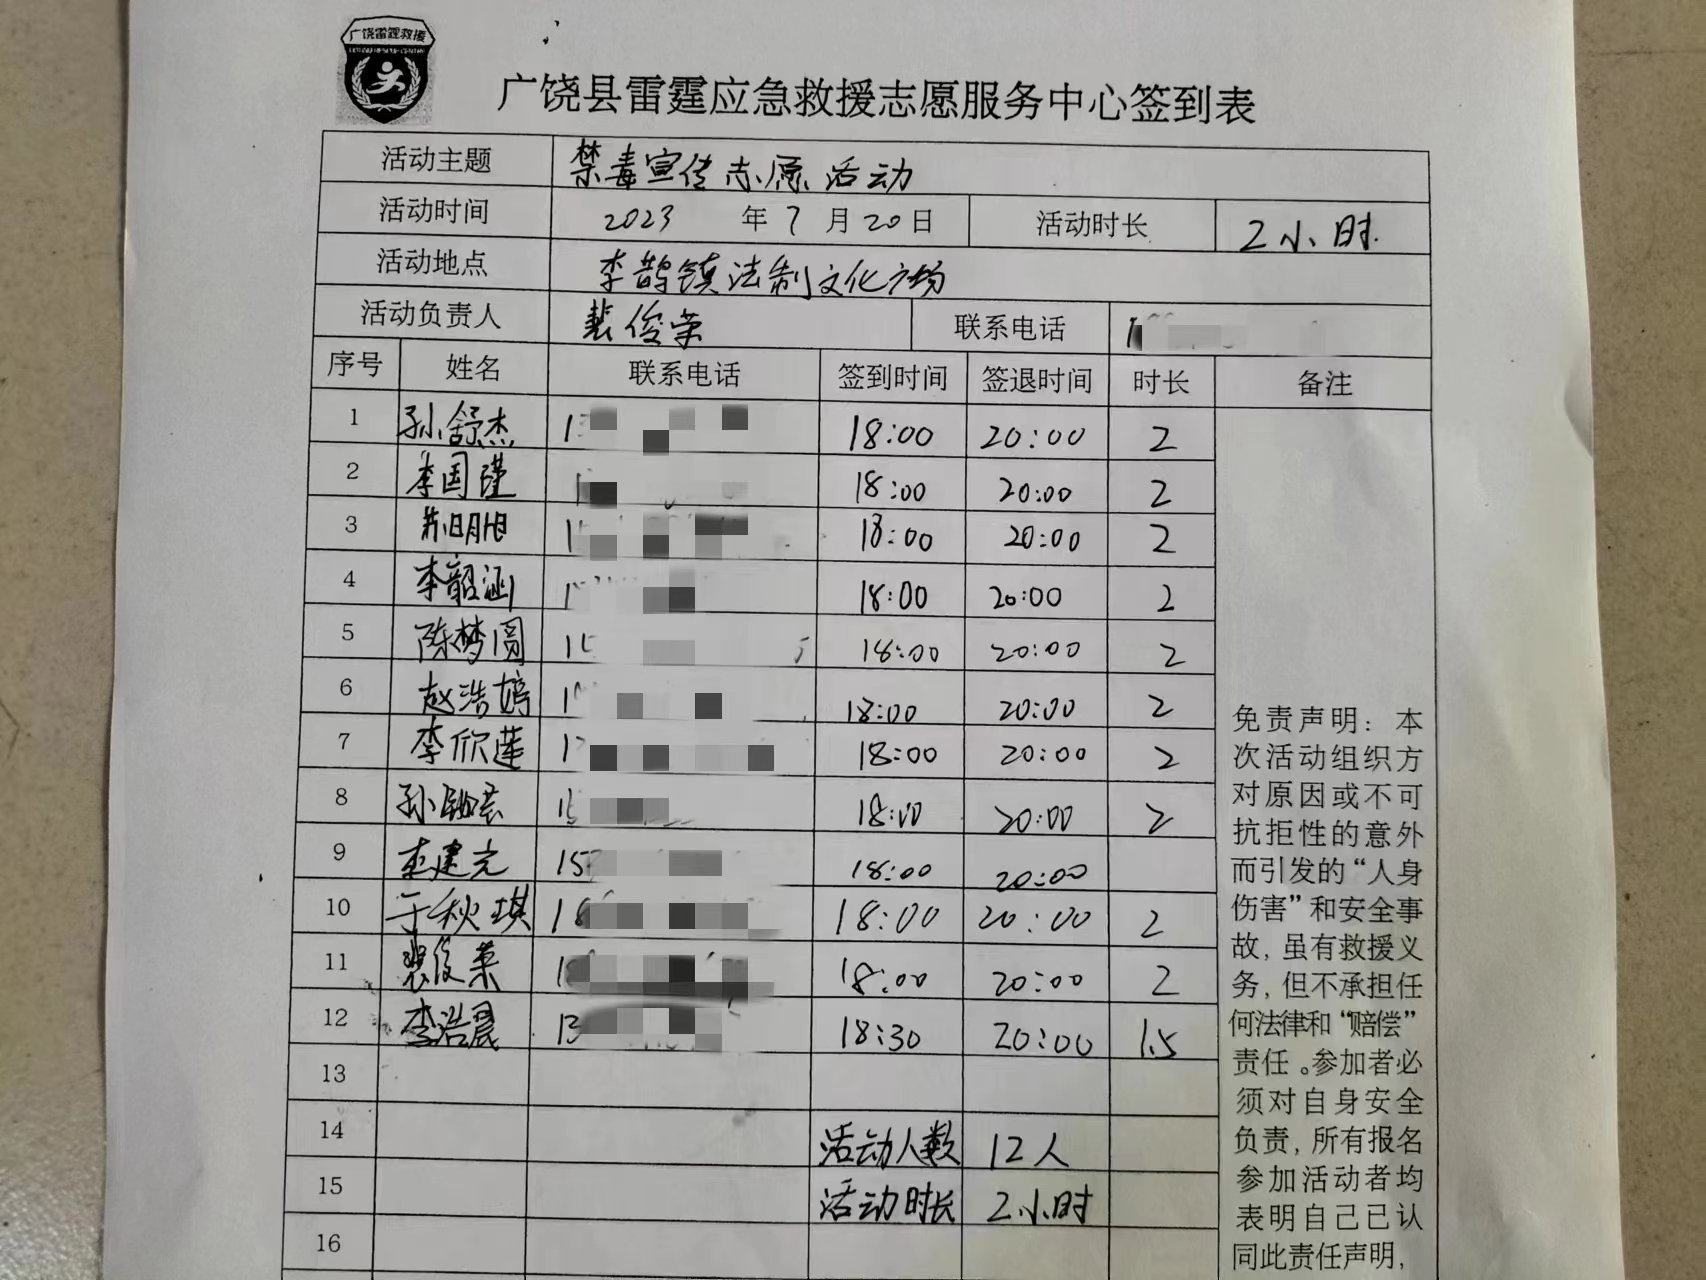 广饶雷霆救援
广饶县雷霆应急救援志愿服务中心签到表
活动主题 禁毒宣传志愿活动
活动时间 2023 年 7 月 20 日 活动时长 2小时.
活动地点 李鹊镇法制文化广场
活动负责人 裴俊荣 联系电话 1
序号 姓名 联系电话 签到时间 签退时间 时长 备注
1 孙舒杰 1 18:00 20:00 2
2 李国瑾 1 18:00 20:00 2
3 1 18:00 20:00 2
4 李韶涵 1 18:00 20:00 2
5 陈梦圆 1 18:00 20:00 2
6 赵浩婷 1 18:00 20:00 2
7 李欣莲 1 18:00 20:00 2
8 孙 18:00 20:00 2
9 李建光 15 18:00 20:00
10 于秋琪 18:00 20:00 2
11 裴俊荣 1 18:00 20:00 2
12 李浩晨 13 18:30 20:00 1.5
13
14 活动人数 12人
15 活动时长 2小时
16
免责声明：本
次活动组织方
对原因或不可
抗拒性的意外
而引发的“人身
伤害”和安全事
故，虽有救援义
务，但不承担任
何法律和“赔偿”
责任。参加者必
须对自身安全
负责，所有报名
参加活动者均
表明自己已认
同此责任声明，